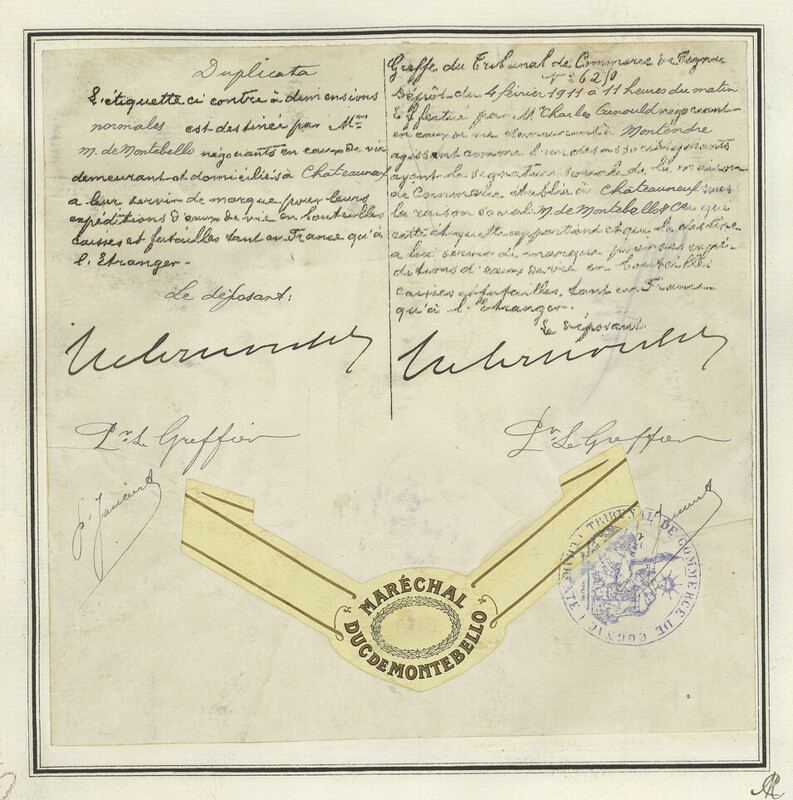 Duplicata
L'étiquette ci contre à dimensions
normales est destinée par Mm
M. de Montebello négociants en eaux de vie
demeurant et domiciliés à Chateauneuf
a leur servir de marque pour leurs
expéditions d'eaux de vie en bouteilles
caisses et futailles tant en France qu'à
l'Etranger.
Le déposant:
Pr Le Greffier
Greffe du Tribunal de Commerce de Cognac
N° 6250
Dépôt du 4 février 1911 à 11 heures du matin
Effectué par M Charles négociant
en eaux de vie demeurant à Montendre
agissant comme l'un des associés gérants
ayant la signature sociale de la maison
de Commerce établie à Chateauneuf sous
la raison sociale M. de Montebello & Cie qui
cette étiquette appartient et qui la destine
a lui servir de marque pour ses expé-
ditions d'eaux de vie en bouteilles
caisses et futailles, tant en France
qu'à l'étranger.
Le Déposant
Pr Le Greffier
MARÉCHAL
DUC DE MONTEBELLO
TRIBUNAL DE COMMERCE DE COGNAC